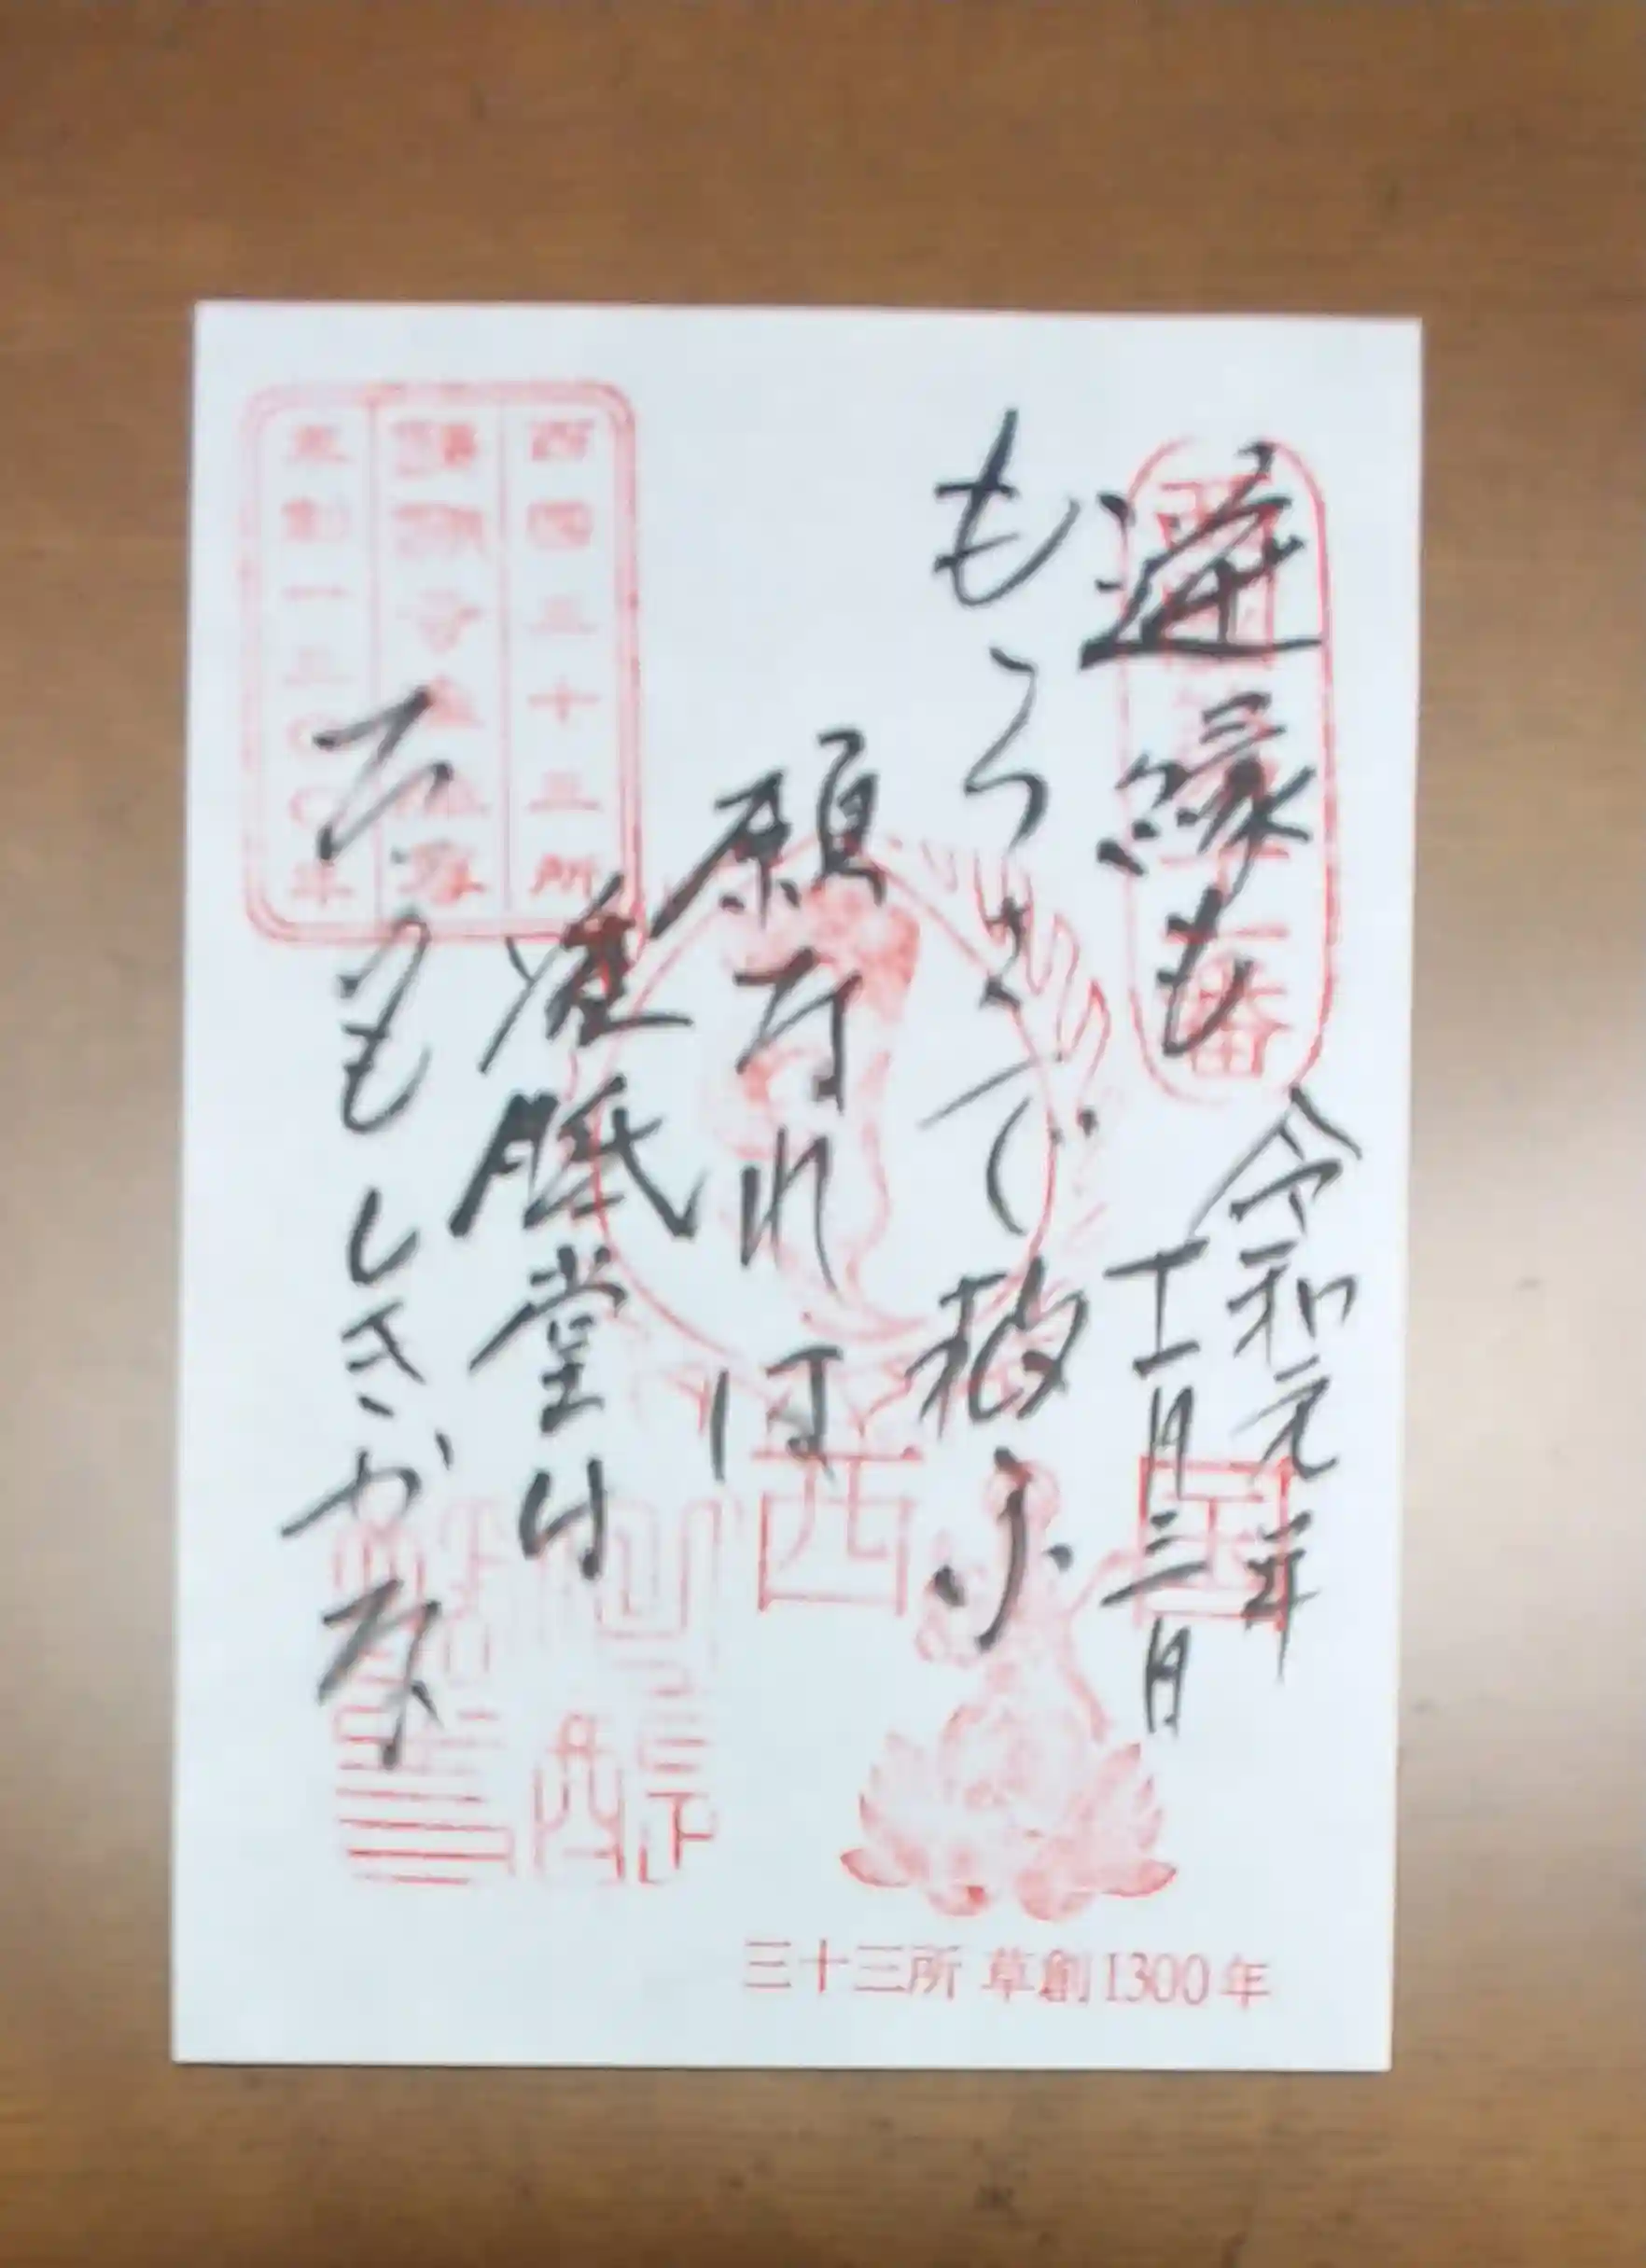 西国第十一番
逆縁も
もらさで救ふ
願なれは
准胝堂は
たのもしきかな
令和元年
十一月三日
西國三十三所
草創一三〇〇年
西国
三十三所 草創1300年